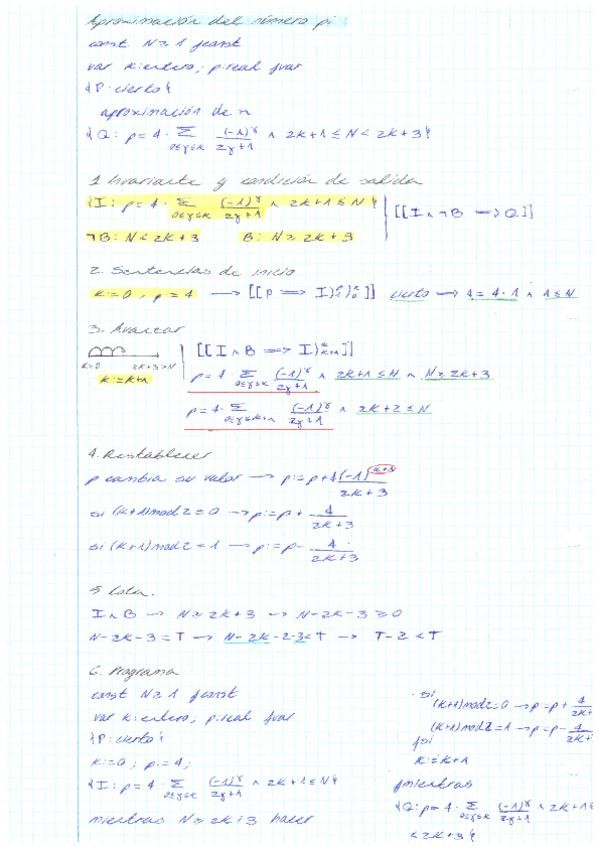 Aproximación del número pi
const N≥1 fconst
var k:entero; p:real fvar
{P: cierto}
aproximación de π
{Q: p=4·Σ 0≤γ≤k (-1)^γ/2γ+1 ∧ 2k+1≤N<2k+3}
1 Invariante y condición de salida
{I: p=4·Σ 0≤γ≤k (-1)^γ/2γ+1 ∧ 2k+1≤N} [[I∧¬B ⟹ Q]]
¬B: N<2k+3 B: N≥2k+3
2. Sentencias de inicio
k:=0, p:=4 → [[P ⟹ I)⁴ₚ)⁰ₖ]] cierto → 4=4·1 ∧ 1≤N
3. Avanzar
[[I∧B ⟹ I)ᵏₖ₊₁]]
k=0 2k+3>N
k:=k+1
p=4·Σ 0≤γ≤k (-1)^γ/2γ+1 ∧ 2k+1≤N ∧ N≥2k+3
p=4·Σ 0≤γ≤k+1 (-1)^γ/2γ+1 ∧ 2k+2≤N
4. Restablecer
p cambia su valor → p:=p+4(-1)^(k+1)/2k+3
si (k+1)mod2=0 → p:=p+ 4/2k+3
si (k+1)mod2=1 → p:=p- 4/2k+3
5 Cota.
I∧B → N≥2k+3 → N-2k-3≥0
N-2k-3=T → N-2k-2-3<T → T-2<T
6. Programa
const N≥1 fconst
var k:entero; p:real fvar
{P: cierto}
k:=0; p:=4;
{I: p=4·Σ 0≤γ≤k (-1)^γ/2γ+1 ∧ 2k+1≤N}
mientras N≥2k+3 hacer
si
(k+1)mod2=0 → p:=p+ 4/2k+
(k+1)mod2=1 → p:=p- 4/2k+
fsi
k:=k+1
fmientras
{Q: p=4·Σ 0≤γ≤k (-1)^γ/2γ+1 ∧ 2k+1≤
<2k+3}